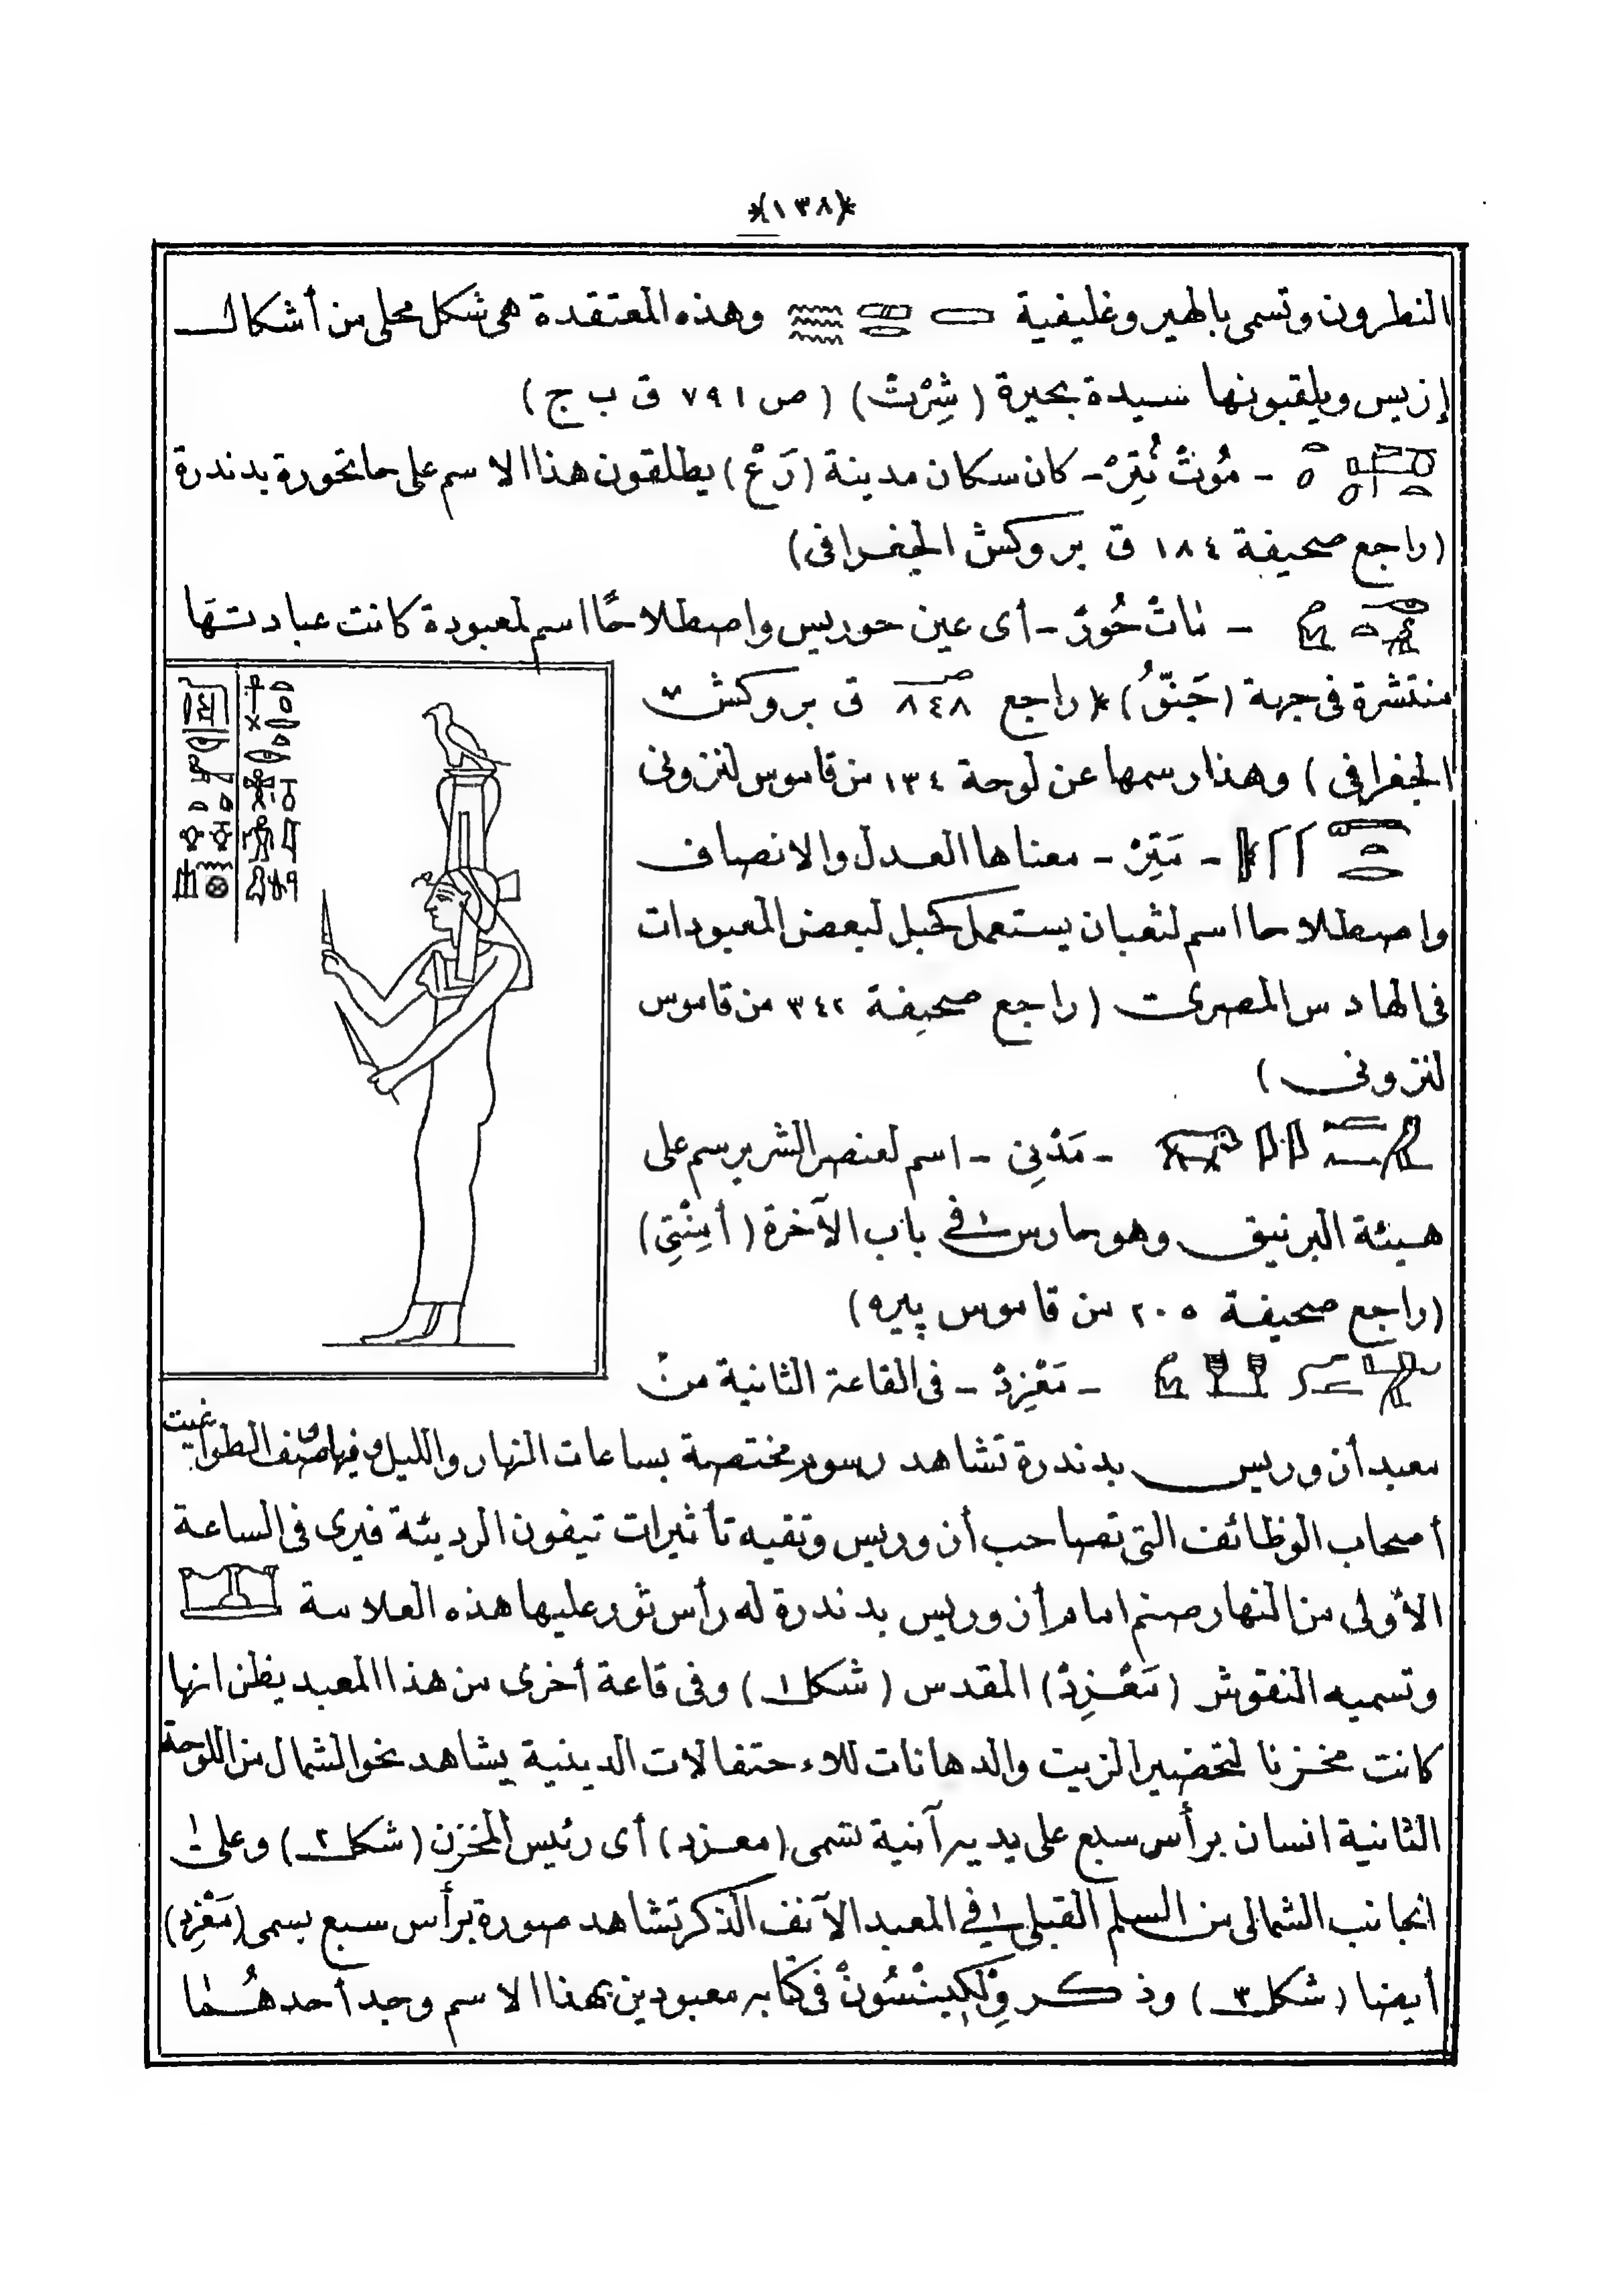 *(١٣٨)*
النطرون وتسمى بالهيروغليفية وهذه المعتقدة هى شكل محلى من أشكال
إزيس ويلقبونها سيدة بحيرة (شِرْتْ) (ص ٧٩١ ق ب ج)
- مُوتْ نُتِرْ - كان سكان مدينة (رَعْ) يطلقون هذا الاسم على حاتحورة بدندرة
(راجع صحيفة ١٨٤ ق بروكش الجغرافى)
- مَاتْ حُورْ - أى عين حوريس واصطلاحًا اسم لمعبودة كانت عبادتها
منتشرة فى جهة (راجع ص ٨٤٨ ق بروكش
الجغرافى) وهذا رسمها عن لوحة ١٣٤ من قاموس لنزونى
- مَتِرْ - معناها العدل والانصاف
واصطلاحا اسم لثعبان يستعمل كحبل لبعض المعبودات
فى الهادس المصرى (راجع صحيفة ٣٤٢ من قاموس
لنزونى)
- مَدْنِى - اسم لعنصر الشر يرسم على
هيئة البرنيق وهو حارس فى باب الآخرة (أمِنْتِى)
(راجع صحيفة ٢٠٥ من قاموس پيره)
- مَعْزِدْ - فى القاعة الثانية من
معبد أن وريس بدندرة تشاهد رسوم مختصة بساعات النهار والليل وفيها صنف الطوا غيت
أصحاب الوظائف التى تصاحب أن وريس وتقيه تأثيرات تيفون الرديئة فيرى فى الساعة
الأولى من النهار صنم امام أن وريس بدندرة له رأس ثور وعليها هذه العلامة
وتسميه النقوش (مَعْزِدْ) المقدس (شكل ١) وفى قاعة أخرى من هذا المعبد يظن انها
كانت مخزنا لتحضير الزيت والدهانات للاحتفالات الدينية يشاهد نحو الشمال من اللوحة
الثانية انسان برأس سبع على يديه آنية تسمى (معزد) أى رئيس المخزن (شكل ٢) وعلى
الجانب الشمالى من السلم القبلى فى المعبد الآنف الذكر تشاهد صورة برأس سبع يسمى (مَعْزِد)
أيضا (شكل ٣) وذكر وِلْكِينْسُونْ فى كتابه معبودين بهذا الاسم وجد أحدهُما